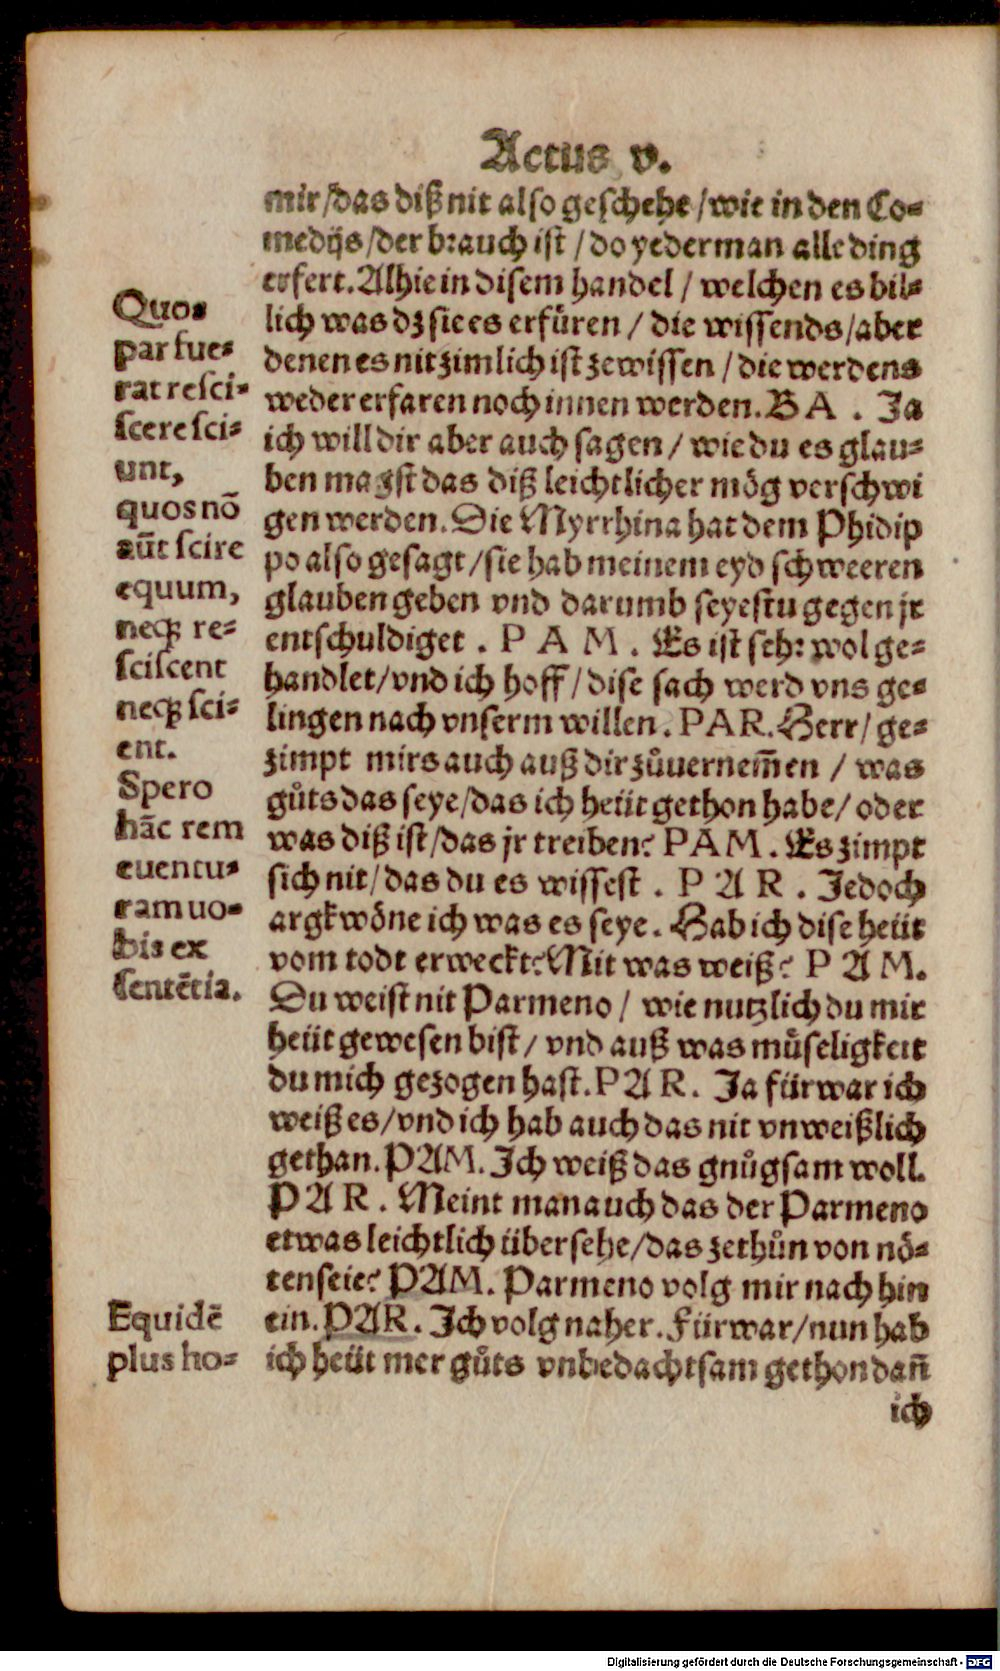 Actus v.
mir/das diß nit also geschehe/wie in den Co⸗
medijs/der brauch ist/do yederman alle ding
erfert. Alhie in disem handel/welchen es bil⸗
lich was dz sie es erfüren/die wissends/aber
denen es nit zimlich ist zewissen/die werdens
weder erfaren noch innen werden. BA. Ja
ich will dir aber auch sagen/wie du es glau⸗
ben magst das diß leichtlicher mög verschwi
gen werden. Die Myrrhina hat dem Phidip
po also gesagt/sie hab meinem eyd schweeren
glauben geben vnd darumb seyestu gegen jr
entschuldiget. PAM. Es ist sehr wol ge⸗
handlet/vnd ich hoff/dise sach werd vns ge⸗
lingen nach vnserm willen. PAR. Herr/ge⸗
zimpt mirs auch auß dir zůuernem̃en/was
gůts das seye/das ich heüt gethon habe/oder
was diß ist/das jr treiben? PAM. Es zimpt
sich nit/das du es wissest. PAR. Jedoch
argkwöne ich was es seye. Hab ich dise heüt
vom todt erweckt? Mit was weiß? PAM.
Du weist nit Parmeno/wie nutzlich du mir
heüt gewesen bist/vnd auß was müseligkeit
du mich gezogen hast. PAR. Ja fürwar ich
weiß es/vnd ich hab auch das nit vnweißlich
gethan. PAM. Ich weiß das gnůgsam woll.
PAR. Meint man auch das der Parmeno
etwas leichtlich übersehe/das zethůn von nö⸗
ten seie? PAM. Parmeno volg mir nach hin
ein. PAR. Ich volg naher. Fürwar/nun hab
ich heüt mer gůts vnbedachtsam gethon dañ
ich
Quos
par fue⸗
rat resci⸗
scere sci⸗
unt,
quos nõ
aũt scire
equum,
neqꝫ re⸗
sciscent
neqꝫ sci⸗
ent.
Spero
hãc rem
euentu⸗
ram uo⸗
bis ex
sentẽtia.
Equidẽ
plus ho⸗
Digitalisierung gefördert durch die Deutsche Forschungsgemeinschaft - DFG